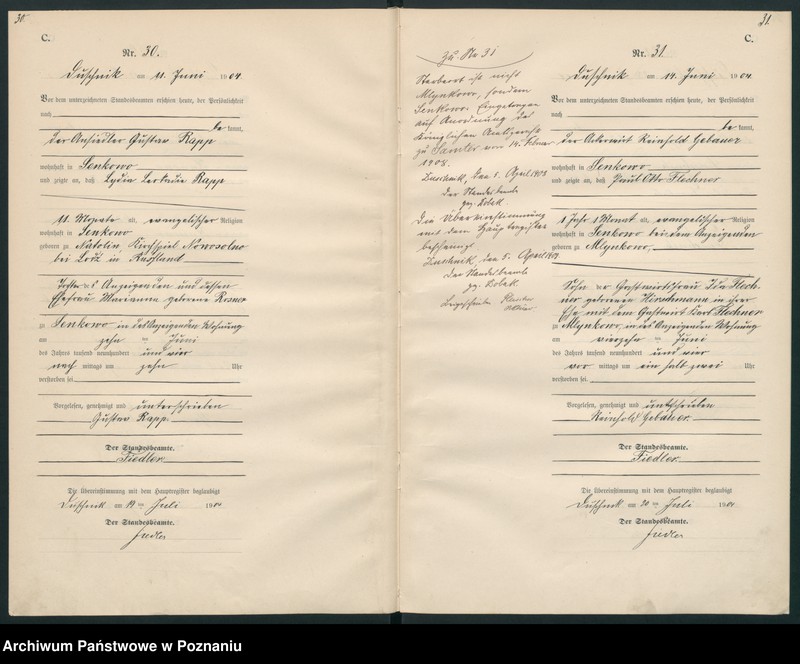 30.
C.
Nr. 30.
Duschnik am 11. Juni 1904.
Vor dem unterzeichneten Standesbeamten erschien heute, der Persönlichkeit
nach
be kannt,
der Ansiedler Gustav Rapp
wohnhaft in Senkowo
und zeigte an, daß Lydia Rapp
11 Monate alt, evangelischer Religion
wohnhaft in Senkowo
geboren zu Natolin, Kirchspiel Nowosolno
bei Lodz in Russland
Tochter des Anzeigenden und dessen
Ehefrau Marianna geborene
zu Senkowo in des Anzeigenden Wohnung
am zehn ten Juni
des Jahres tausend neunhundert und vier
nach mittags um zehn Uhr
verstorben sei.
Vorgelesen, genehmigt und unterschrieben
Gustav Rapp.
Der Standesbeamte.
Fiedler.
Die Übereinstimmung mit dem Hauptregister beglaubigt
Duschnik am 19 ten Juli 1904
Der Standesbeamte.
Fiedler
Zu Nr 31
Sterbeort ist nicht
Mlynkowo, sondern
Senkowo. Eingetragen
auf Anordnung des
Königlichen Amtsgerichts
zu Samter vom 14. Februar
1908.
Duschnik, den 5. April 1908
Der Standesbeamte
gez. Lobek.
Die Übereinstimmung
mit dem Hauptregister
Duschnik, den 5. April
Der Standesbeamte
gez. Lobek
31.
C.
Nr. 31.
Duschnik am 14. Juni 1904.
Vor dem unterzeichneten Standesbeamten erschien heute, der Persönlichkeit
nach
be kannt,
der Ackerwirt Reinhold Gebauer
wohnhaft in Senkowo
und zeigte an, daß Paul Otto Flechner
1 Jahr 1 Monat alt, evangelischer Religion
wohnhaft in Senkowo bei dem Anzeigenden
geboren zu Mlynkowo,
Sohn der Gastwirtsfrau Ida Flech-
ner geborenen Hirschmann in ihrer
Ehe mit dem Gastwirt Karl Flechner
zu Mlynkowo, in des Anzeigenden Wohnung
am vierzehn ten Juni
des Jahres tausend neunhundert und vier
vor mittags um ein halb zwei Uhr
verstorben sei.
Vorgelesen, genehmigt und unterschrieben
Reinhold Gebauer.
Der Standesbeamte.
Fiedler.
Die Übereinstimmung mit dem Hauptregister beglaubigt
Duschnik am 20 ten Juli 1904
Der Standesbeamte.
Fiedler
Archiwum Państwowe w Poznaniu